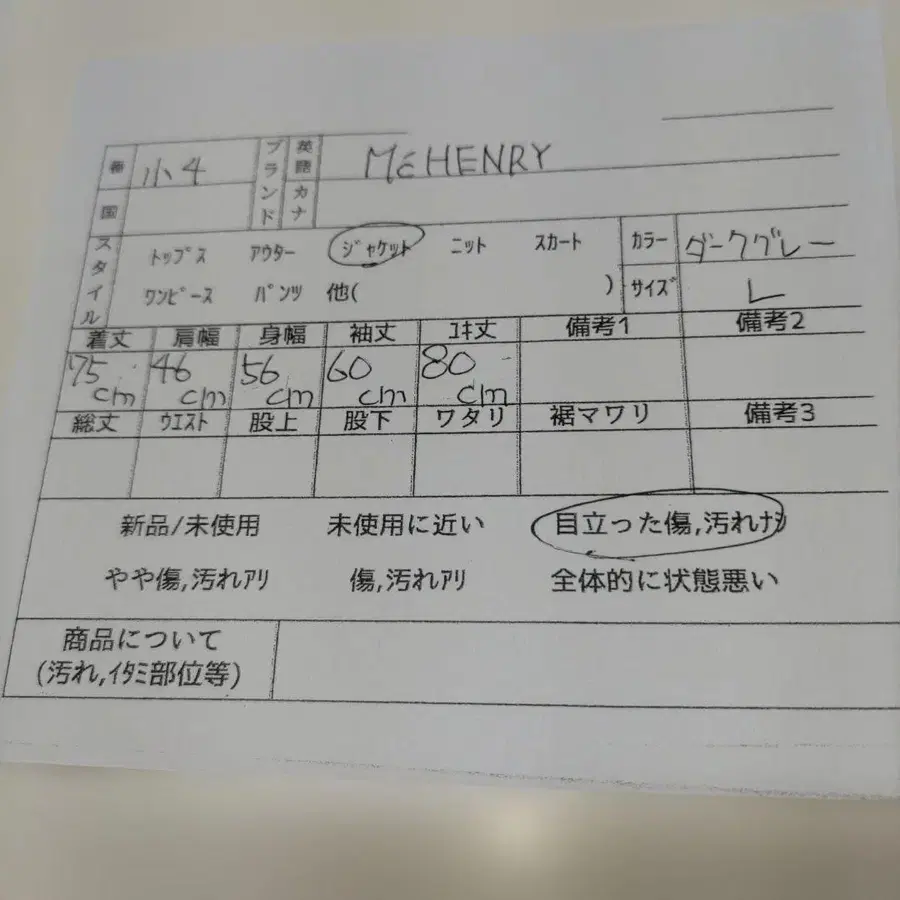 番 小4 ブランド 英語 McHENRY
国 カナ
スタイル トップス アウター ジャケット ニット スカート カラー ダークグレー
ワンピース パンツ 他( ) サイズ L
着丈 肩幅 身幅 袖丈 ユキ丈 備考1 備考2
75cm 46cm 56cm 60cm 80cm
総丈 ウエスト 股上 股下 ワタリ 裾マワリ 備考3
新品/未使用 未使用に近い 目立った傷,汚れナシ
やや傷,汚れアリ 傷,汚れアリ 全体的に状態悪い
商品について
(汚れ,イタミ部位等)